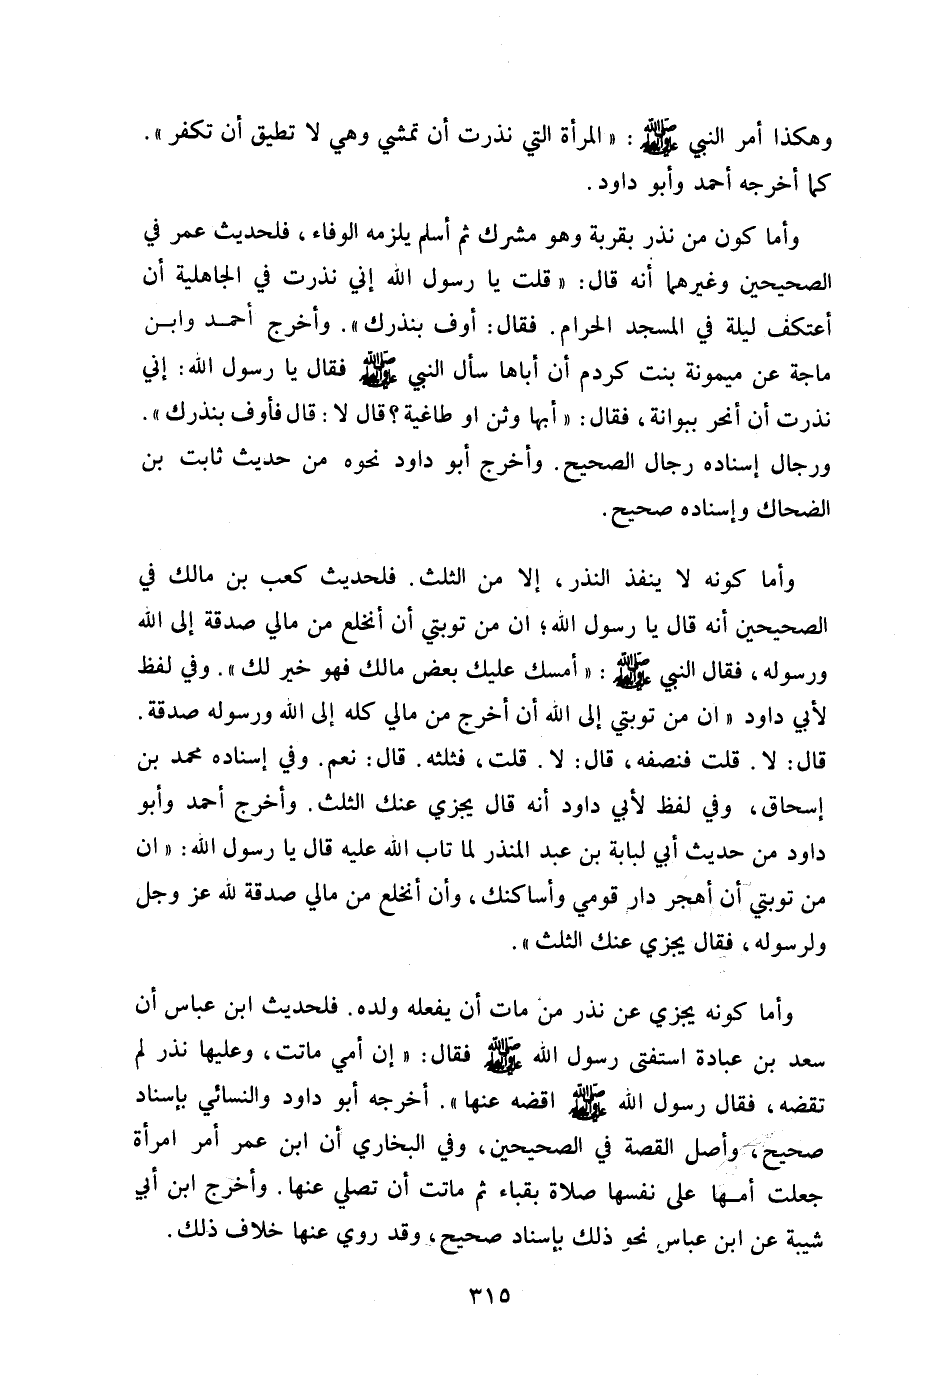 وهكذا أمر النبي ﷺ : « المرأة التي نذرت أن تمشي وهي لا تطيق أن تكفر » .
كما أخرجه أحمد وأبو داود .
وأما كون من نذر بقربة وهو مشرك ثم أسلم يلزمه الوفاء ، فلحديث عمر في
الصحيحين وغيرهما أنه قال : « قلت يا رسول الله إني نذرت في الجاهلية أن
أعتكف ليلة في المسجد الحرام . فقال : أوف بنذرك » . وأخرج أحمد وابن
ماجة عن ميمونة بنت كردم أن أباها سأل النبي ﷺ فقال يا رسول الله : إني
نذرت أن أنحر ببوانة ، فقال : « أبها وثن او طاغية ؟ قال لا : قال فأوف بنذرك » .
ورجال إسناده رجال الصحيح . وأخرج أبو داود نحوه من حديث ثابت بن
الضحاك وإسناده صحيح .
وأما كونه لا ينفذ النذر ، إلا من الثلث . فلحديث كعب بن مالك في
الصحيحين أنه قال يا رسول الله ؛ ان من توبتي أن أنخلع من مالي صدقة إلى الله
ورسوله ، فقال النبي ﷺ : « أمسك عليك بعض مالك فهو خير لك » . وفي لفظ
لأبي داود « ان من توبتي إلى الله أن أخرج من مالي كله إلى الله ورسوله صدقة .
قال : لا . قلت فنصفه ، قال : لا . قلت ، فثلثه . قال : نعم . وفي إسناده محمد بن
إسحاق ، وفي لفظ لأبي داود أنه قال يجزي عنك الثلث . وأخرج أحمد وأبو
داود من حديث أبي لبابة بن عبد المنذر لما تاب الله عليه قال يا رسول الله : « ان
من توبتي أن أهجر دار قومي وأساكنك ، وأن أنخلع من مالي صدقة لله عز وجل
ولرسوله ، فقال يجزي عنك الثلث » .
وأما كونه يجزي عن نذر من مات أن يفعله ولده . فلحديث ابن عباس أن
سعد بن عبادة استفتى رسول الله ﷺ فقال : « إن أمي ماتت ، وعليها نذر لم
تقضه ، فقال رسول الله ﷺ اقضه عنها » . أخرجه أبو داود والنسائي بإسناد
صحيح ، وأصل القصة في الصحيحين ، وفي البخاري أن ابن عمر أمر امرأة
جعلت أمها على نفسها صلاة بقباء ثم ماتت أن تصلي عنها . وأخرج ابن أبي
شيبة عن ابن عباس نحو ذلك بإسناد صحيح ، وقد روي عنها خلاف ذلك .
٣١٥